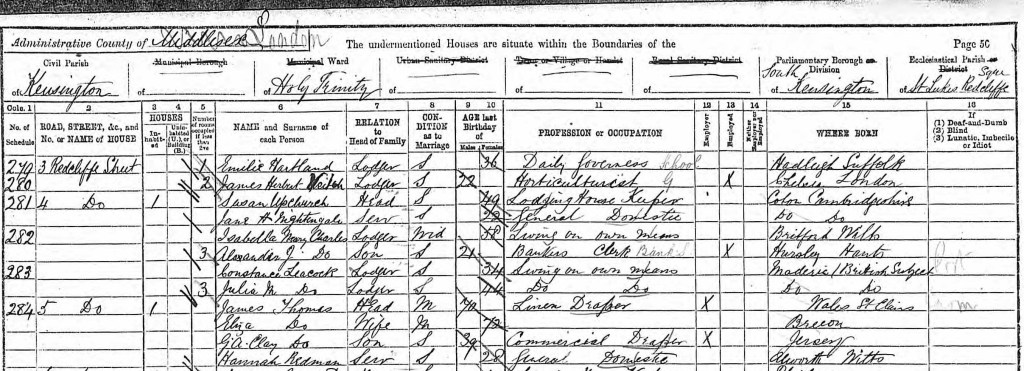 Administrative County of Middlesex London The undermentioned Houses are situate within the Boundaries of the Page 50
Civil Parish Municipal Borough Municipal Ward Urban Sanitary District Town or Village or Hamlet Rural Sanitary District Parliamentary Borough or Division Ecclesiastical Parish or District
of Kensington of of Holy Trinity of of of of South Kensington of St Lukes Redcliffe Sqre
Cols. 1 2 3 4 5 6 7 8 9 10 11 12 13 14 15 16
No. of Schedule ROAD, STREET, &c., and No. or NAME of HOUSE HOUSES Inhabited Uninhabited (U.), or Building (B.) Number of rooms occupied if less than five NAME and Surname of each Person RELATION to Head of Family CONDITION as to Marriage AGE last Birthday of Males Females PROFESSION or OCCUPATION Employer Employed Neither Employer nor Employed WHERE BORN If (1) Deaf-and-Dumb (2) Blind (3) Lunatic, Imbecile or Idiot
279 3 Redcliffe Street 1 Emilie Hartland Lodger S 36 Daily Governess School Hadleigh Suffolk
280 2 James Herbut Veitch Lodger S 22 Horticulturist X Chelsea London
281 4 Do 1 Susan Upchurch Head S 49 Lodging House Keeper Coton Cambridgeshire
Jane A Nightengale Serv S 22 General Domestic Do Do
282 Isabella Mary Charles Lodger Wid 58 Living on own means Britford Wilts
3 Alexander J. Do Son S 21 Bankers Clerk Banks X Hursley Hants
283 Constance Leacock Lodger S 34 Living on own means Maderia / British Subject
3 Julia M Do Lodger S 44 Do Do Do Do
284 5 Do 1 James Thomas Head M 70 Linen Draper X Wales St Clairs
Eliza Do Wife M 72 Brecon
G.A. Clay Do Son S 39 Commercial Draper X Jersey
Hannah Redman Serv S 28 General Domestic Wilts